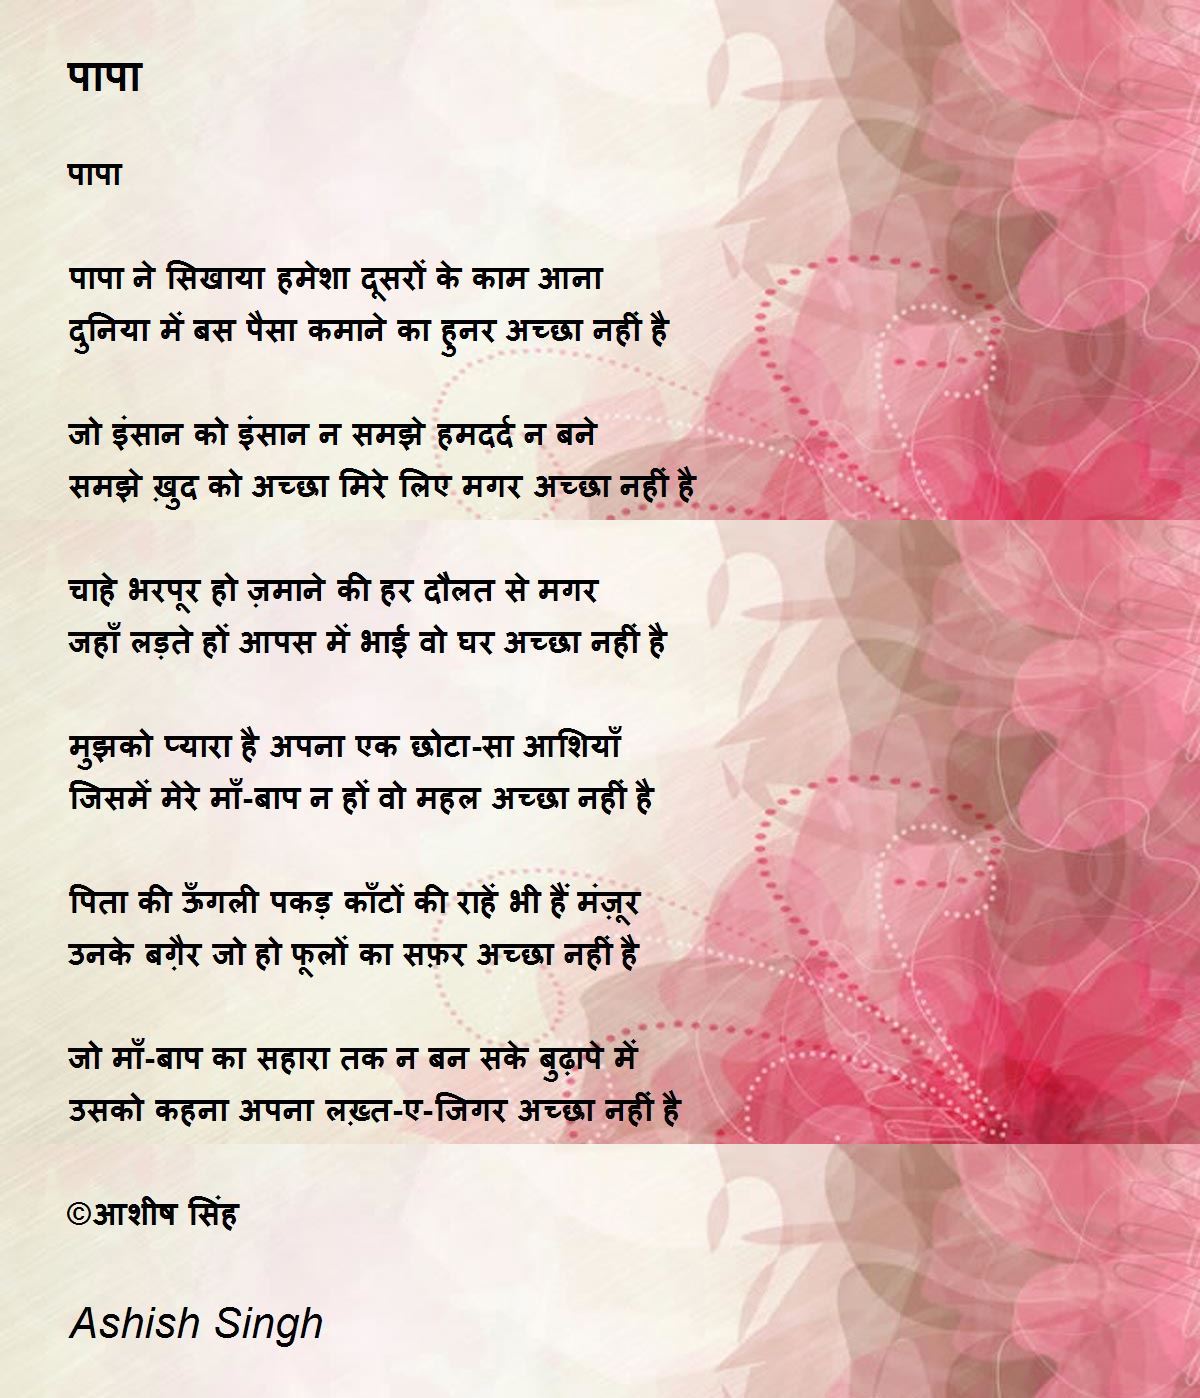 पापा
पापा
पापा ने सिखाया हमेशा दूसरों के काम आना
दुनिया में बस पैसा कमाने का हुनर अच्छा नहीं है
जो इंसान को इंसान न समझे हमदर्द न बने
समझे ख़ुद को अच्छा मिरे लिए मगर अच्छा नहीं है
चाहे भरपूर हो ज़माने की हर दौलत से मगर
जहाँ लड़ते हों आपस में भाई वो घर अच्छा नहीं है
मुझको प्यारा है अपना एक छोटा-सा आशियाँ
जिसमें मेरे माँ-बाप न हों वो महल अच्छा नहीं है
पिता की ऊँगली पकड़ काँटों की राहें भी हैं मंज़ूर
उनके बग़ैर जो हो फूलों का सफ़र अच्छा नहीं है
जो माँ-बाप का सहारा तक न बन सके बुढ़ापे में
उसको कहना अपना लख़्त-ए-जिगर अच्छा नहीं है
©आशीष सिंह
Ashish Singh